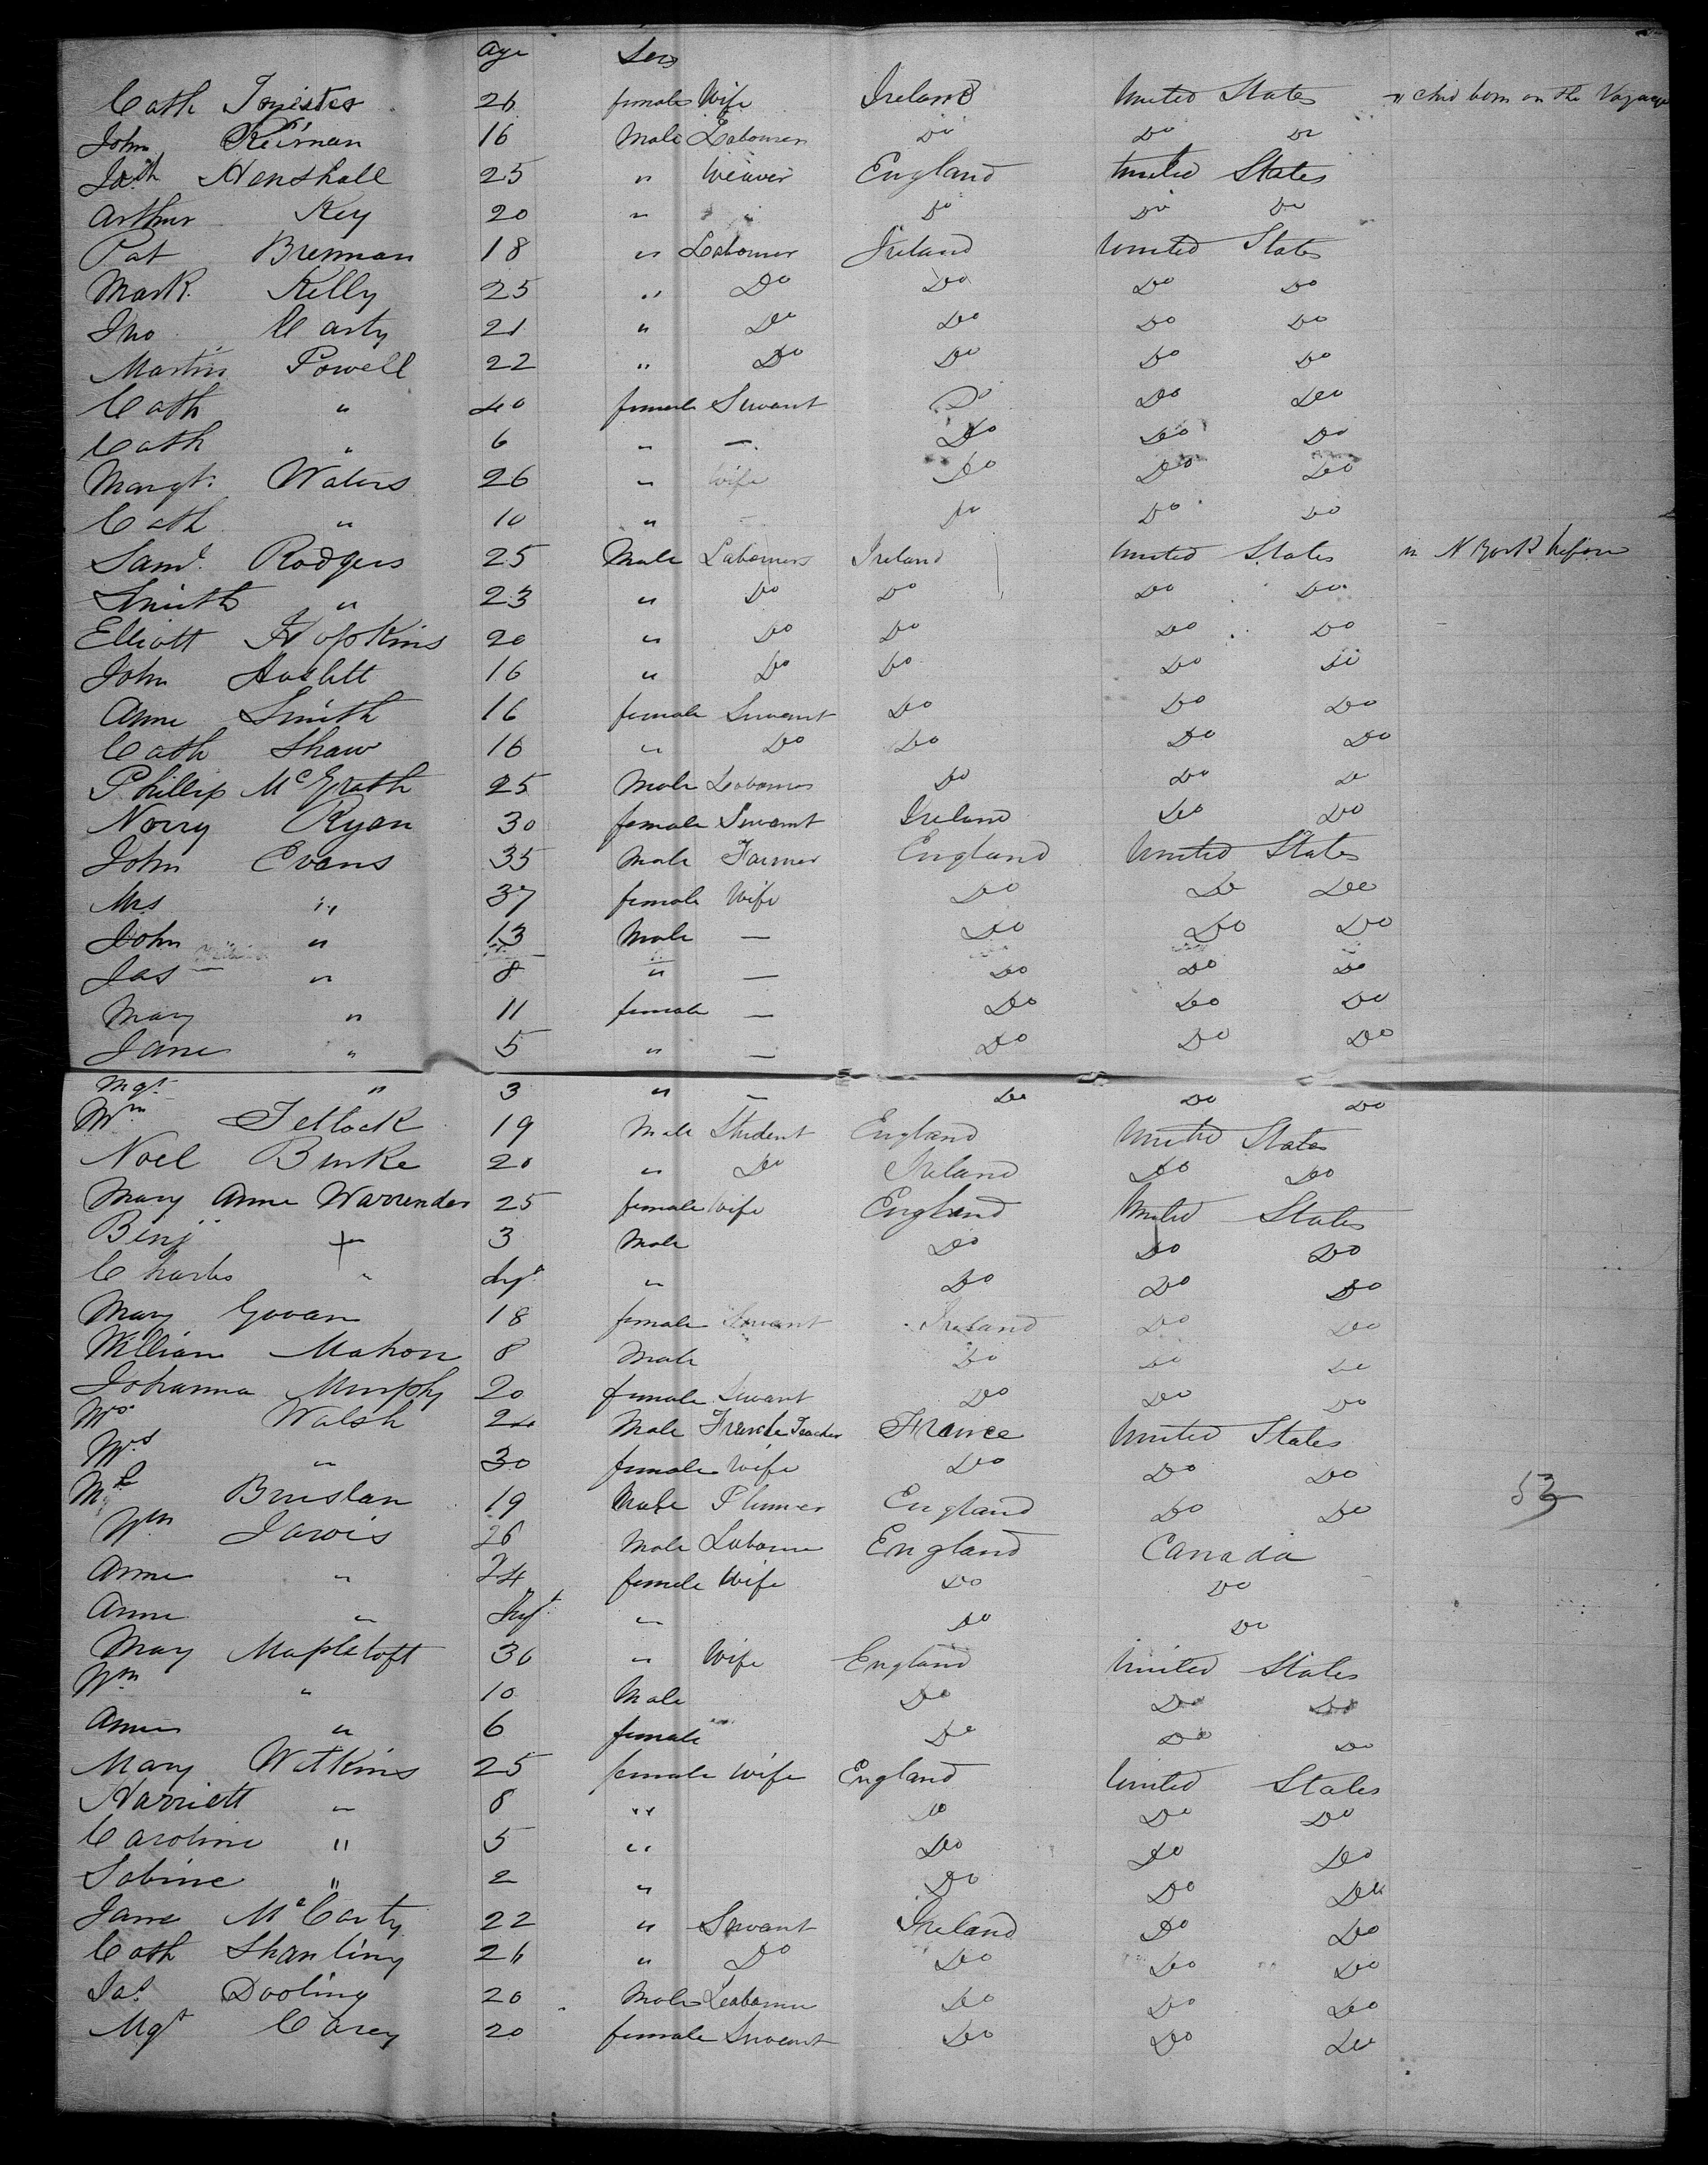 Age Sex
Cath 26 female Wife Ireland United States child born on the Voyage
John Keirnan 16 Male Labourer Do Do Do
Jos.h Henshall 25 " Weaver England United States
Arthur Key 20 " " Do Do Do
Pat Brennan 18 " Labourer Ireland United States
Mark Kelly 25 " Do Do Do Do
Jno Carty 21 " Do Do Do Do
Martin Powell 22 " Do Do Do Do
Cath " 40 female Servant Do Do Do
Cath " 6 " — Do Do Do
Margt. Waters 26 " Wife Do Do Do
Cath " 10 " — Do Do Do
Saml. Rodgers 25 Male Labourers Ireland United States in N York before
Smith " 23 " Do Do Do Do
Elliott Hopkins 20 " Do Do Do Do
John Haslett 16 " Do Do Do Do
Anne Smith 16 female Servant Do Do Do
Cath Shaw 16 " Do Do Do Do
Phillip McGrath 25 Male Labourer Do Do Do
Norry Ryan 30 female Servant Ireland Do Do
John Evans 35 Male Farmer England United States
Mrs " 37 female Wife Do Do Do
John " 13 Male — Do Do Do
Jas " 8 " — Do Do Do
Mary " 11 female — Do Do Do
Jane " 5 " — Do Do Do
Mgt " 3 " — Do Do Do
Wm Tetlock 19 Male Student England United States
Noel Burke 20 " Do Ireland Do Do
Mary Anne Warrender 25 female Wife England United States
Benj " 3 Male Do Do Do
Charles " Inft " Do Do Do
Mary Govan 18 female Servant Ireland Do Do
William Mahon 8 Male Do Do Do
Johanna Murphy 20 female Servant Do Do Do
Walsh 24 Male French Teacher France United States
Mrs " 30 female Wife Do Do Do
Mr Brislan 19 Male Plumer England Do Do 53
Wm Jarvis 26 Male Labourer England Canada
Anne " 24 female Wife Do Do
Anne " Inft " Do Do
Mary Mapletoft 36 " Wife England United States
Wm " 10 Male Do Do Do
Anne " 6 female Do Do Do
Mary Watkins 25 female Wife England United States
Harriett " 8 " Do Do Do
Caroline " 5 " Do Do Do
Sabine " 2 " Do Do Do
Jane McCarty 22 " Servant Ireland Do Do
Cath Shanling 26 " Do Do Do Do
Jas Dooling 20 Male Labourer Do Do Do
Mgt Carey 20 female Servant Do Do Do